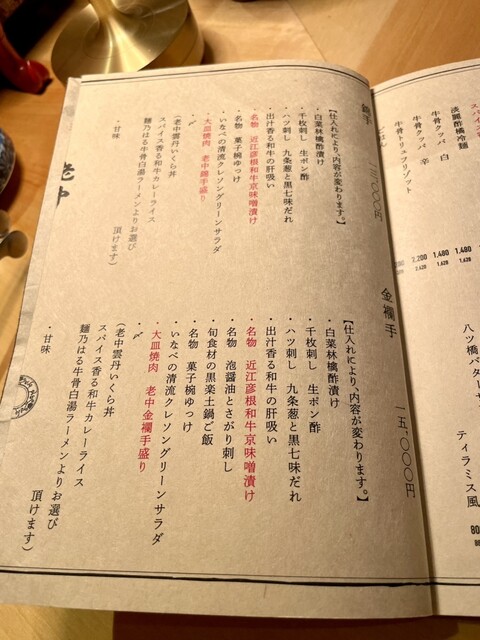 錦手
【仕入れにより、内容が変わります。】
・白菜林檎酢漬け
・千枚刺し 生ポン酢
・ハツ刺し 九条葱と黒七味だれ
・出汁香る和牛の肝吸い
・名物 近江彦根和牛京味噌漬け
・名物 菓子椀ゆっけ
・いなべの清流クレソングリーンサラダ
・大皿焼肉 老中錦手盛り
・〆
(老中雲丹いくら丼
スパイス香る和牛カレーライス
麺乃はる牛骨白湯ラーメンよりお選び
頂けます)
・甘味
老中
金襴手
一五、〇〇〇円
【仕入れにより、内容が変わります。】
・白菜林檎酢漬け
・千枚刺し 生ポン酢
・ハツ刺し 九条葱と黒七味だれ
・出汁香る和牛の肝吸い
・名物 近江彦根和牛京味噌漬け
・名物 泡醤油とさがり刺し
・旬食材の黒楽土鍋ご飯
・名物 菓子椀ゆっけ
・いなべの清流クレソングリーンサラダ
・大皿焼肉 老中金襴手盛り
・〆
(老中雲丹いくら丼
スパイス香る和牛カレーライス
麺乃はる牛骨白湯ラーメンよりお選び
頂けます)
・甘味
淡麗酢橘冷麺
1,480
1,628
牛骨クッパ 白
1,480
1,628
牛骨クッパ 辛
牛骨トリュフリゾット
2,200
2,420
ごはん
八ツ橋バターサ
ティラミス風